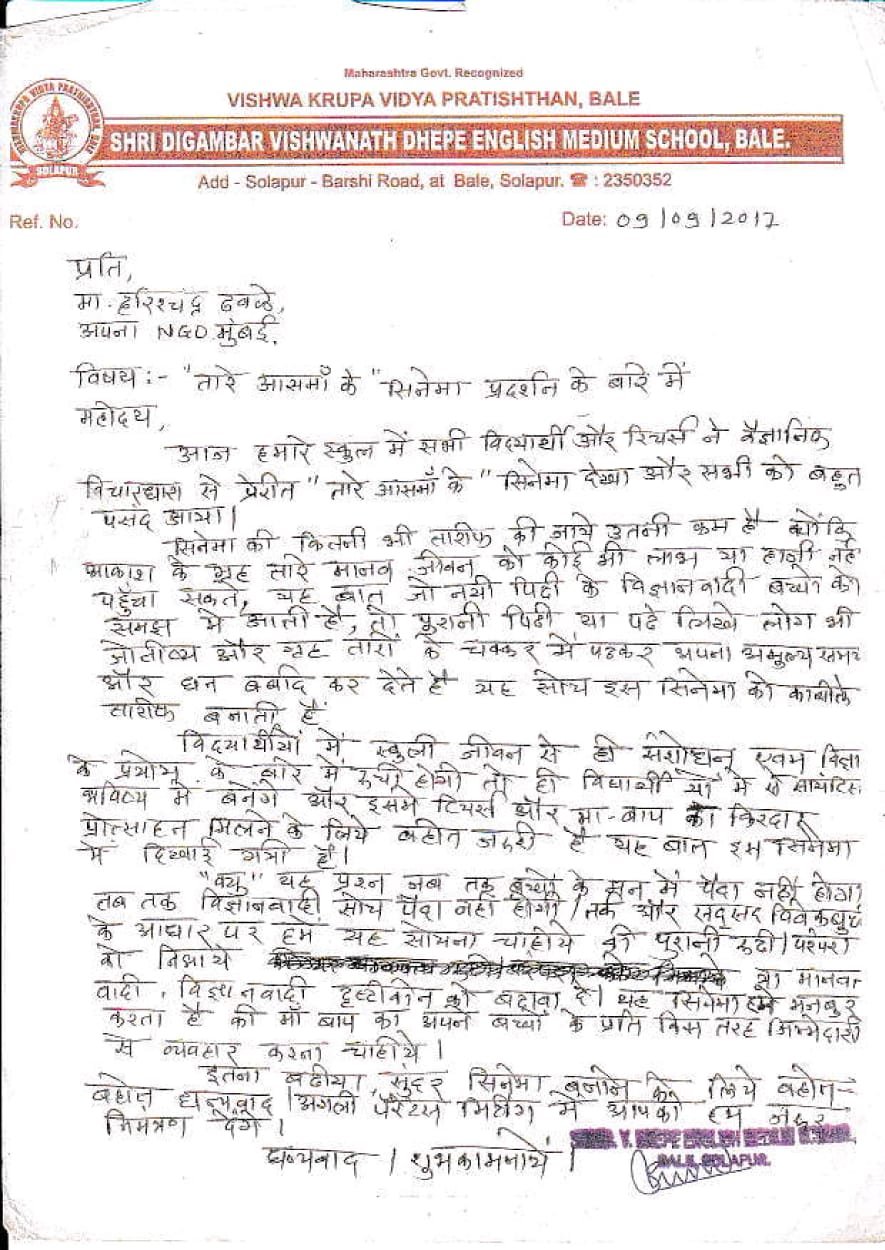 Maharashtra Govt. Recognized
VISHWA KRUPA VIDYA PRATISHTHAN, BALE
SHRI DIGAMBAR VISHWANATH DHEPE ENGLISH MEDIUM SCHOOL, BALE.
SOLAPUR
Add - Solapur - Barshi Road, at Bale, Solapur. ☎ : 2350352
Ref. No.
Date: 09/09/2017
प्रति,
मा. हरिश्चंद्र ढवळे,
अपना NGO मुंबई.
विषय :- "तारे आसमाँ के" सिनेमा प्रदर्शन के बारे में
महोदय,
आज हमारे स्कुल में सभी विद्यार्थी और टिचर्स ने वैज्ञानिक
विचारधारा से प्रेरीत "तारे आसमाँ के" सिनेमा देखा और सभी को बहुत
पसंद आया।
सिनेमा की कितनी भी तारीफ की जाये उतनी कम है क्योंकि
आकाश के ग्रह तारे मानव जीवन को कोई भी लाभ या हानी नही
पहुँचा सकते, यह बात जो नयी पिढी के विज्ञानवादी बच्चो को
समझ मे आती है, तो पुरानी पिढी या पढे लिखे लोग भी
जोतीष्य और ग्रह तारों के चक्कर में पडकर अपना अमुल्य समय
और धन बर्बाद कर देते है यह सोच इस सिनेमा को काबीले
तारीफ बनाती है
विद्यार्थीयों में स्कुली जीवन से ही संशोधन एवम विज्ञा
के प्रयोग के बारे में रुची होगी तो ही विद्यार्थी यों मे से सायंटिस
भविष्य मे बनेंगे और इसमे टिचर्स और मा-बाप का किरदार
प्रोत्साहन मिलने के लिये बहोत जरुरी है यह बात इस सिनेमा
में दिखाई गयी है।
"क्यु" यह प्रश्न जब तक बच्चो के मन में पैदा नही होगा
तब तक विज्ञानवादी सोच पैदा नही होगी। तर्क और सदसद विवेकबुध्द
के आधार पर हमे यह सोचना चाहीये की पुरानी रुढी। परंपरा
को निभाये या मानवा
वादी, विज्ञानवादी दृष्टीकोन को बढावा दे। यह सिनेमा हमे मजबुर
करता है की माँ बाप को अपने बच्चों के प्रति किस तरह जिम्मेदारी
से व्यवहार करना चाहीये।
इतना बढीया, सुंदर सिनेमा बनाने के लिये बहोत-
बहोत धन्यवाद। अगली पॅरेंटस मिटींग में आपको हम जरूर
निमंत्रण देंगे।
धन्यवाद। शुभकामनाये।
V. DHEPE ENGLISH MEDIUM SCHOOL,
BALE, SOLAPUR.